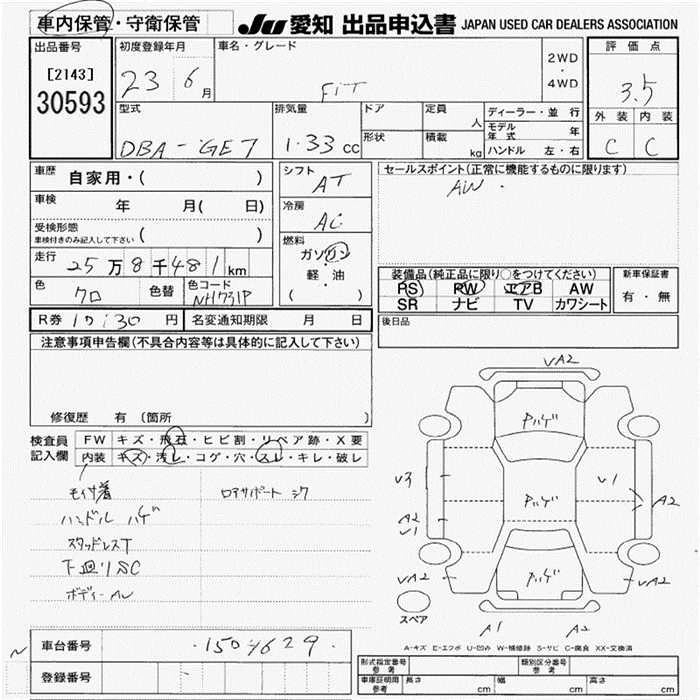 車内保管・守衛保管
JU 愛知 出品申込書 JAPAN USED CAR DEALERS ASSOCIATION
出品番号
[2143]
30593
初度登録年月
23 6月
車名・グレード
FIT
2WD
・
4WD
評価点
3.5
外装 内装
C C
型式
DBA-GE7
排気量
1.33cc
ドア
形状
定員
人
積載
kg
ディーラー・並行
モデル年式 年
ハンドル 左・右
車歴
自家用・( )
車検
年 月( 日)
受検形態
車検付きのみ記入して下さい ( )
走行
25万8千481km
色
クロ
色替
色コード
NH731P
シフト
AT
冷房
AC
燃料
ガソリン
軽・油
( )
セールスポイント(正常に機能するものに限ります)
AW
装備品(純正品に限り○をつけてください)
PS PW エアB AW
SR ナビ TV カワシート
新車保証書
有・無
R券 円
名変通知期限 月 日
後日品
注意事項申告欄(不具合内容等は具体的に記入して下さい)
修復歴 有 (箇所 )
検査員記入欄
FW キズ・飛石・ヒビ割・リペア跡・X要
内装 キズ・汚レ・コゲ・穴・スレ・キレ・破レ
ロアサポート シワ
ハンドル ハゲ
スタッドレスT
下廻りSC
VA2
Pハゲ
V3
Pハゲ
V1
A2
A2
V1
VA2
Pハゲ
VA2
スペア
A1
A2
A-キズ E-エクボ U-凹み W-補修跡 S-サビ C-腐食 XX-交換済
車台番号
登録番号
型式指定番号
参考
類別区分番号
参考
車庫証明用
参考
長さ cm
幅 cm
高さ cm